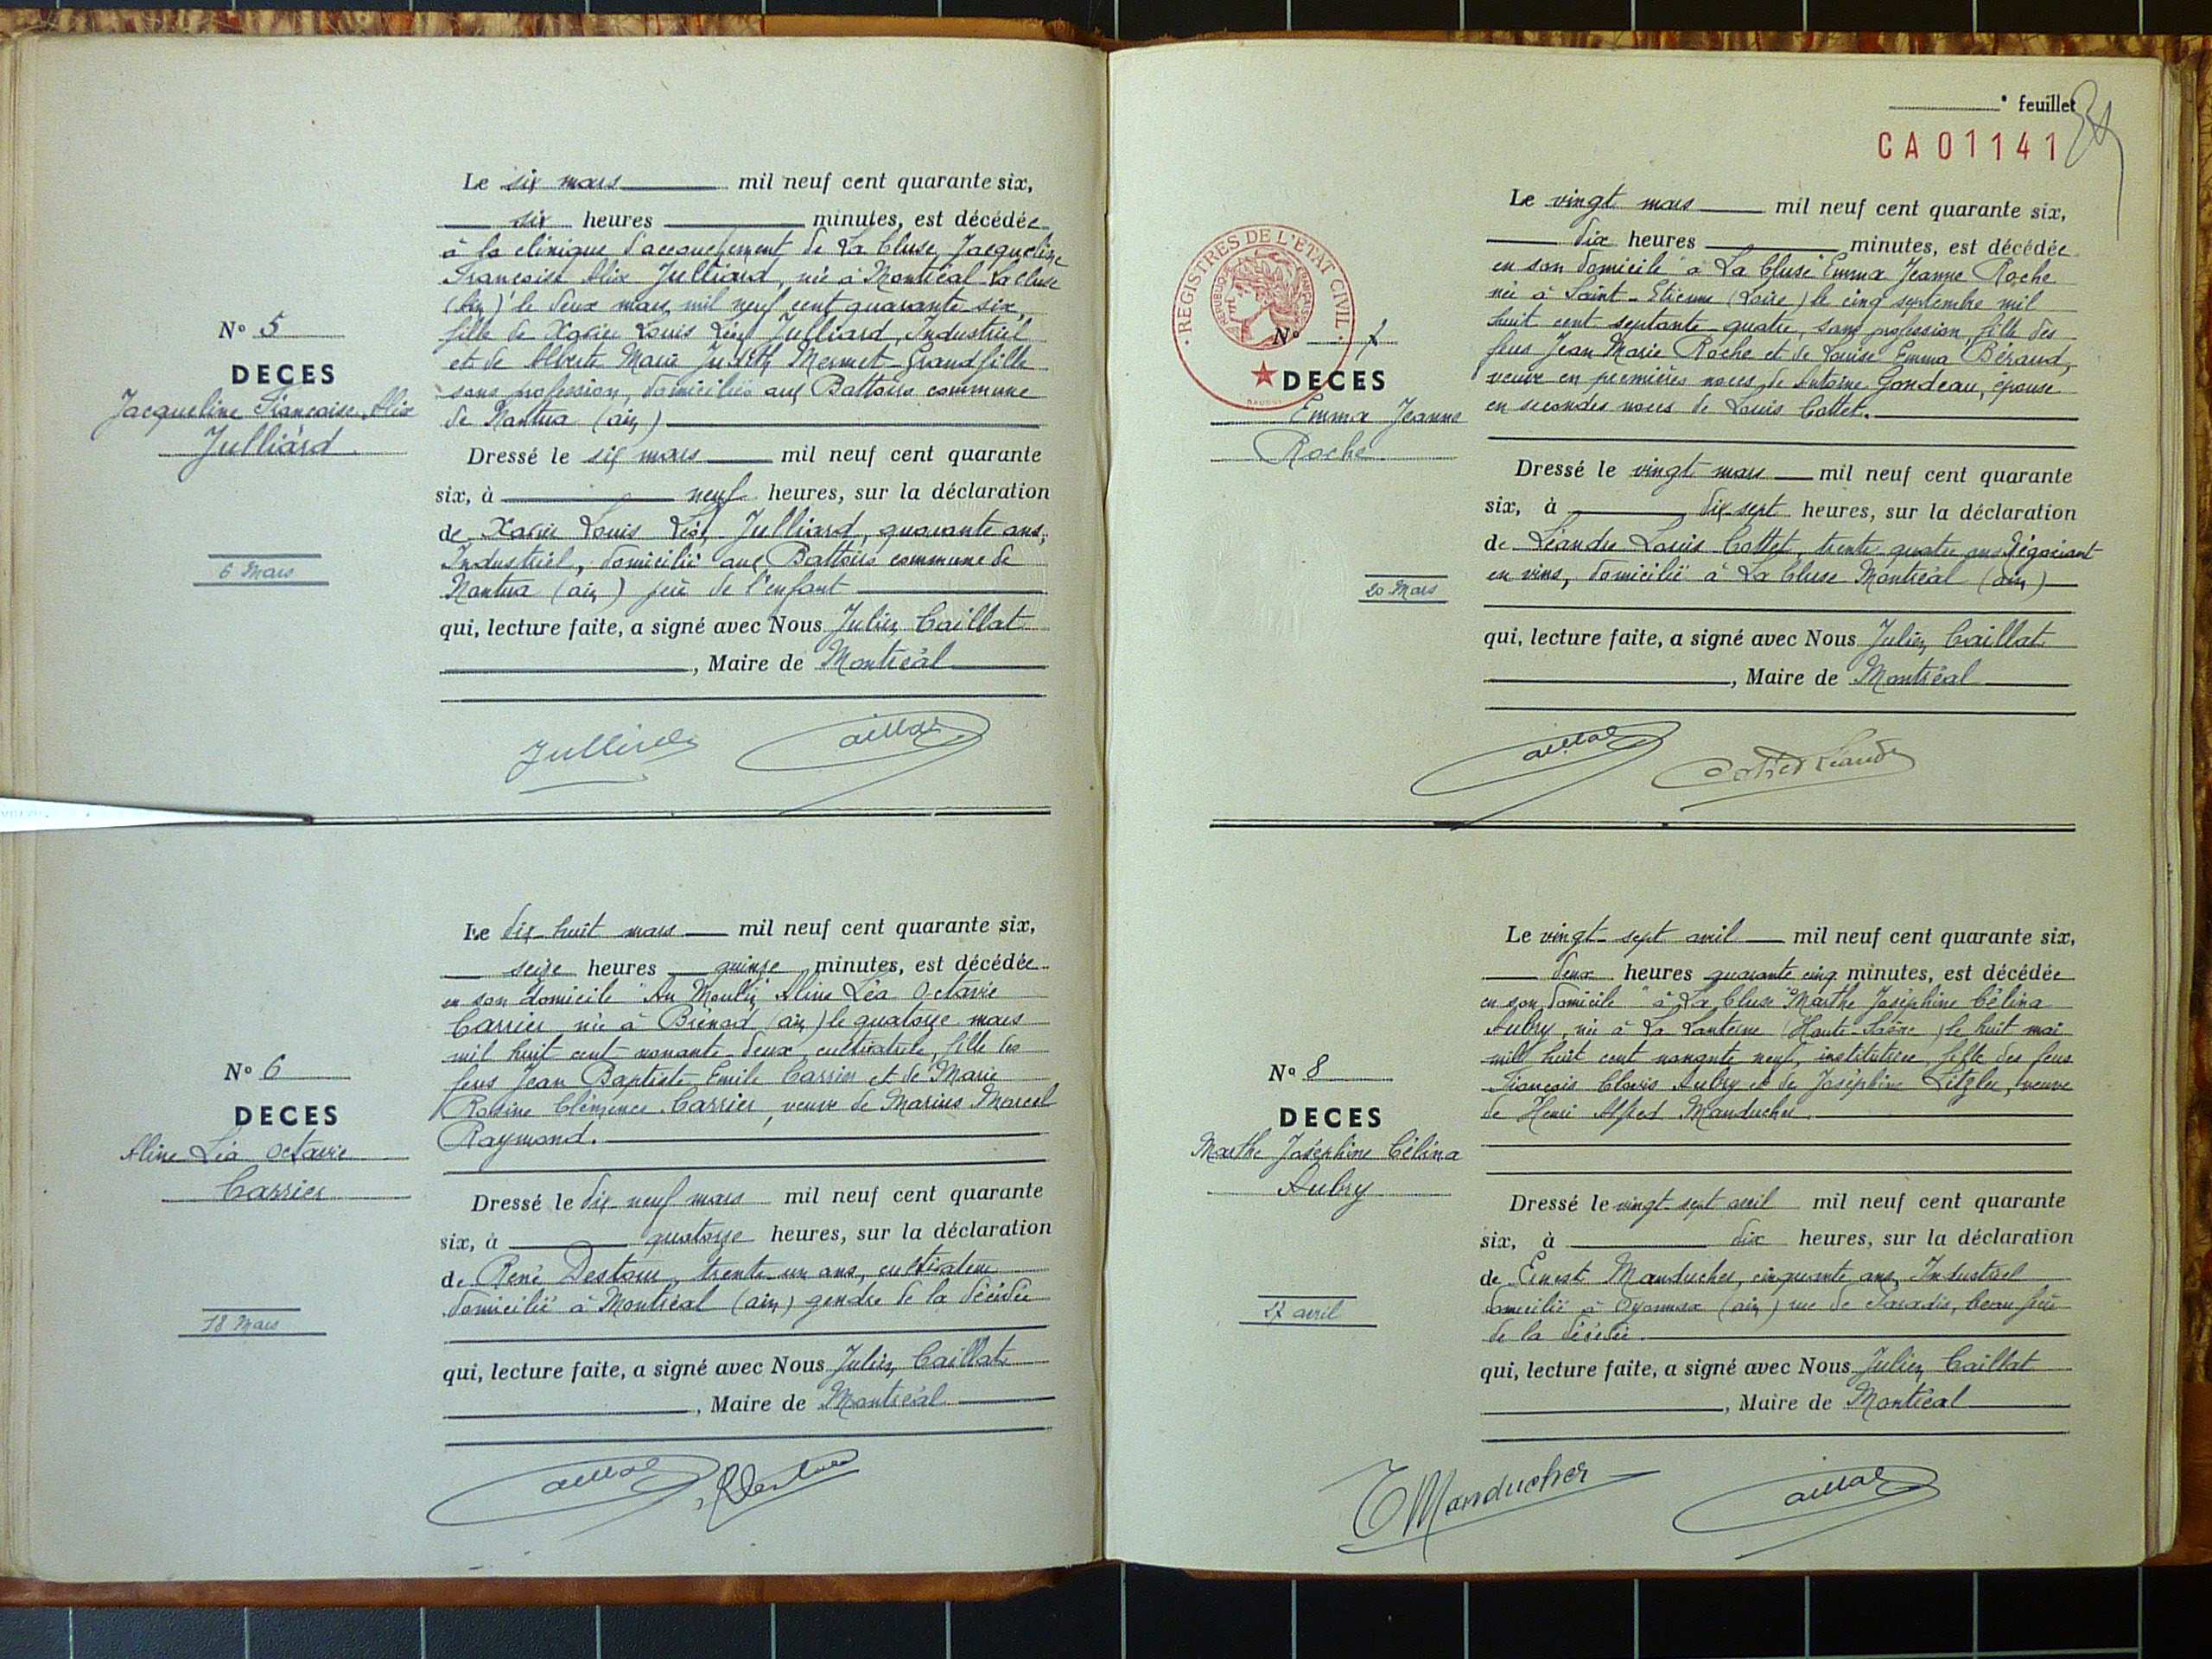 Le six mars mil neuf cent quarante six,
six heures minutes, est décédée
à la clinique d'accouchement de La Cluse, Jacqueline
Françoise Alix Julliard, née à Montréal-La Cluse
(Ain) le deux mars mil neuf cent quarante six,
fille de Xavier Louis Léon Julliard, Industriel
et de Alberte Marie Judith Mermet-Grandfille
sans profession, domiciliés aux Battoirs commune
de Nantua (ain)
N° 5
DECES
Jacqueline Françoise Alix
Julliard
Dressé le six mars mil neuf cent quarante
six, à neuf heures, sur la déclaration
de Xavier Louis Léon Julliard, quarante ans,
Industriel, domicilié aux Battoirs commune de
Nantua (ain) père de l'enfant
6 Mars
qui, lecture faite, a signé avec Nous Julien Caillat
, Maire de Montréal
Le dix-huit mars mil neuf cent quarante six,
seize heures quinze minutes, est décédée
en son domicile "Au Moulin" Aline Léa Octavie
Carrier, née à Brénod (ain) le quatorze mars
mil huit cent nonante-deux, cultivatrice, fille des
feus Jean Baptiste Emile Carrier et de Marie
Rosine Clémence Carrier, veuve de Marius Marcel
Raymond.
N° 6
DECES
Aline Léa Octavie
Carrier
Dressé le dix-neuf mars mil neuf cent quarante
six, à quatorze heures, sur la déclaration
de René Destour, trente-un ans, cultivateur
domicilié à Montréal (ain) gendre de la décédée
18 Mars
qui, lecture faite, a signé avec Nous Julien Caillat
, Maire de Montréal
° feuillet
CA01141
Le vingt mars mil neuf cent quarante six,
dix heures minutes, est décédée
en son domicile "à La Cluse" Emma Jeanne Roche
née à Saint-Etienne (Loire) le cinq septembre mil
huit cent septante-quatre, sans profession, fille des
feus Jean Marie Roche et de Louise Emma Béraud,
veuve en premières noces de Antoine Gondeau, épouse
en secondes noces de Louis Cottet.
REGISTRES DE L'ETAT CIVIL
REPUBLIQUE FRANÇAISE
N° 7
DECES
Emma Jeanne
Roche
Dressé le vingt mars mil neuf cent quarante
six, à dix-sept heures, sur la déclaration
de Léandre Louis Cottet, trente-quatre ans Négociant
en vins, domicilié à La Cluse Montréal (ain)
20 Mars
qui, lecture faite, a signé avec Nous Julien Caillat
, Maire de Montréal
Le vingt-sept avril mil neuf cent quarante six,
deux heures quarante cinq minutes, est décédée
en son domicile "à La Cluse" Marthe Joséphine Célina
Aubry, née à La Lanterne (Haute-Saône) le huit mai
mil huit cent nonante neuf, institutrice, fille des feus
François Clovis Aubry et de Joséphine Litzler, veuve
de Henri Alfred Manducher
N° 8
DECES
Marthe Joséphine Célina
Aubry
Dressé le vingt-sept avril mil neuf cent quarante
six, à dix heures, sur la déclaration
de Ernest Manducher, cinquante ans, Industriel
domicilié à Oyonnax (ain) rue de Paradis, beau frère
de la décédée.
27 avril
qui, lecture faite, a signé avec Nous Julien Caillat
, Maire de Montréal
Manducher